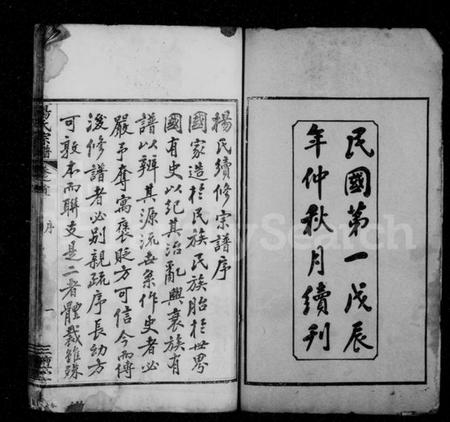 民國第一戊辰
年仲秋月續刊
楊氏續修宗譜序
國家造於民族民族胎於世界
國有史以紀其治亂興衰族有
譜以辨其源流世系作史者必
嚴予奪寓褒貶方可信今而傳
後修譜者必別親疏序長幼方
可敦本而聯支是二者體裁雖殊
楊氏宗譜
序
一